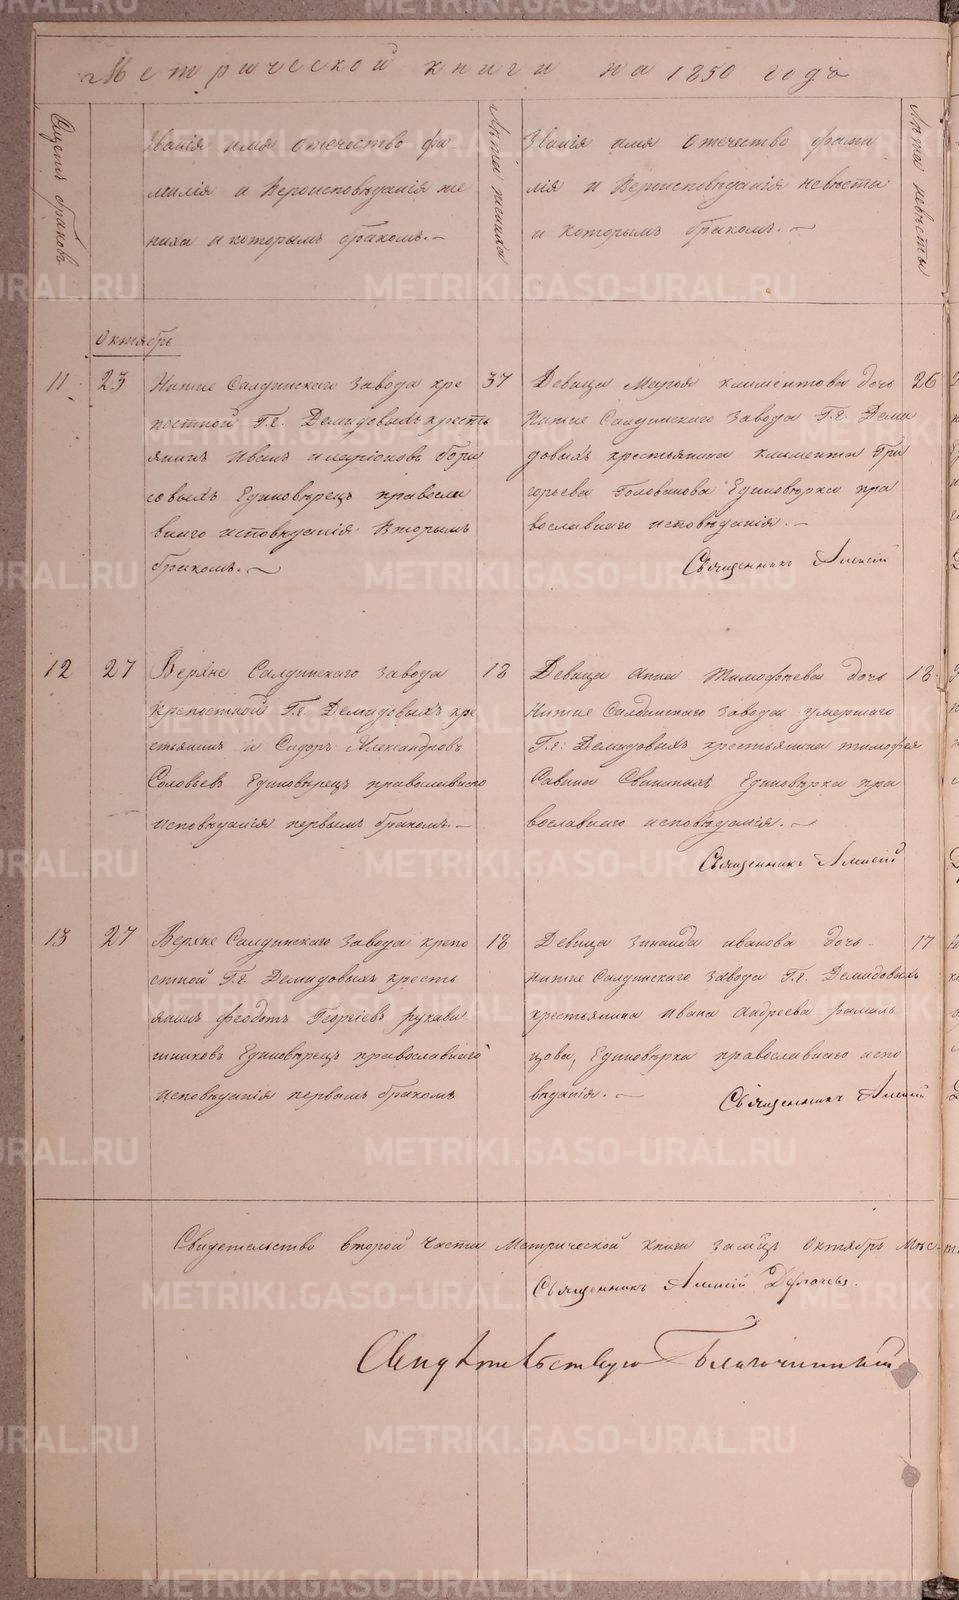 Метрической книги на 1850 годъ
Счетъ браковъ
Званія имя отечество фа-
милія и Вероисповѣданія же
ниха и которымъ бракомъ. —
Лѣта жениха
Званія имя отечество фами
лія и Вероисповѣданія невѣсты
и которымъ бракомъ. —
Лѣта невѣсты
Октябрь
11 23
Нижне Салдинскаго завода кре
постной Г.г. Демидовыхъ кресть
янинъ Иванъ Иларіоновъ Бори
совыхъ Единовѣрецъ правосла
внаго исповѣданія Вторымъ
бракомъ. —
37
Девица Марѳа Климентова дочь
Нижне Салдинскаго завода Г.г. Деми
довыхъ крестьянина Климента Гри
горьева Голованова Единовѣрка пра
вославнаго исповѣданія. —
Священникъ Алексій
26
12 27
Верхне Салдинскаго завода
крепостной Г.г. Демидовыхъ кре
стьянинъ и Сидоръ Александровъ
Соловьевъ Единовѣрецъ православнаго
исповѣданія первымъ бракомъ. —
18
Девица Анна Тимофѣева дочь
Нижне Салдинскаго завода умершаго
Г.г: Демидовыхъ крестьянина Тимофея
Савина Свининыхъ Единовѣрка пра
вославнаго исповѣданія. —
Священникъ Алексій
18
13 27
Верхне Салдинскаго завода крепо
стной Г.г. Демидовыхъ кресть
янинъ Феодотъ Георгіевъ Рукави
шниковъ Единовѣрецъ православнаго
исповѣданія первымъ бракомъ
18
Девица Зинаида Иванова дочь
Нижне Салдинскаго завода Г.г. Демидовыхъ
крестьянина Ивана Андреева
Единовѣрка православнаго испо
вѣданія. —
Священникъ Алексій
17
Свидетельство второй части Метрической книги за Октябрь
Священникъ Алексій
Свидѣтельствую Благочинный
METRIKI.GASO-URAL.RU